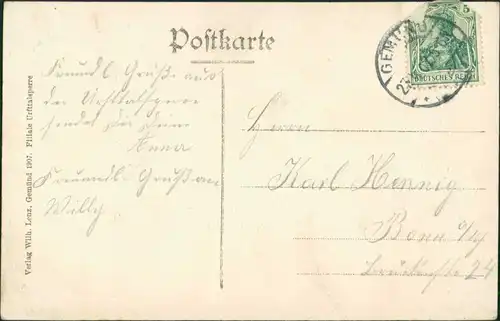 Postkarte
5
DEUTSCHES REICH
GEMÜND
Freundl. Grüße aus
der Urfttalsperre
sendet Dir Deine
Anna
Freundl. Gruß an
Willy
Herrn
Karl Hennig
Bonn a/Rh
24
Verlag Wilh. Lenz, Gemünd 1907. Filiale Urfttalsperre